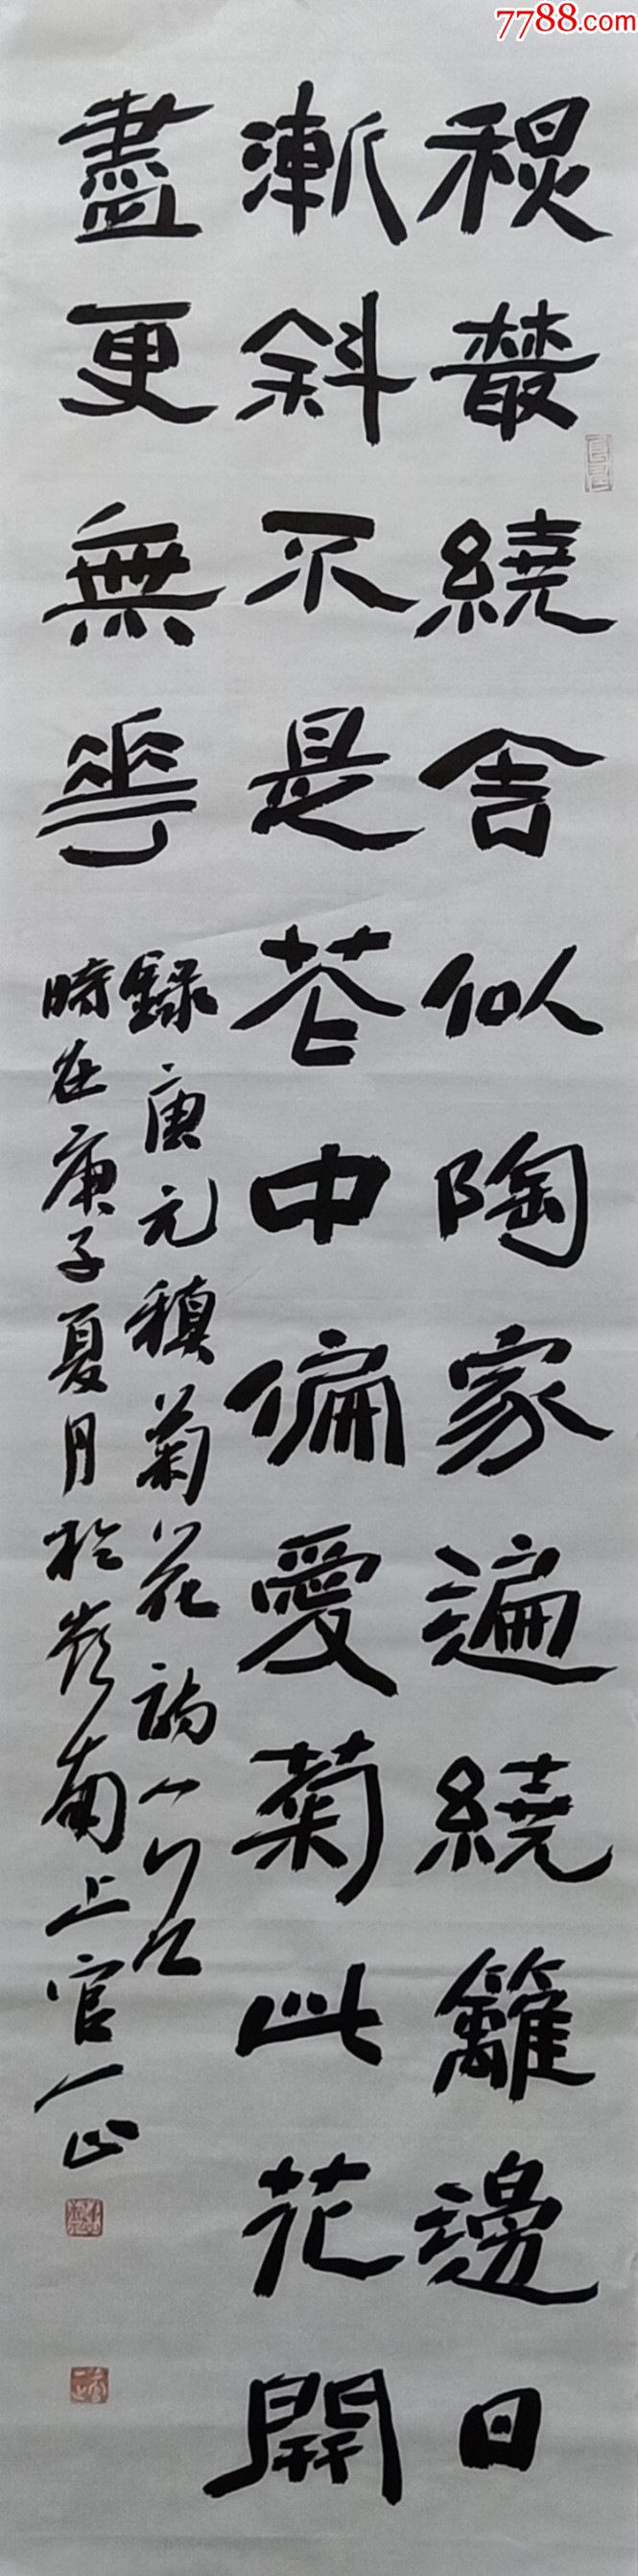 7788.com
秋叢繞舍似陶家遍繞籬邊日
漸斜不是花中偏愛菊此花開
盡更無華
錄唐元稹菊花詩一首
時在庚子夏月於嶺南上官一